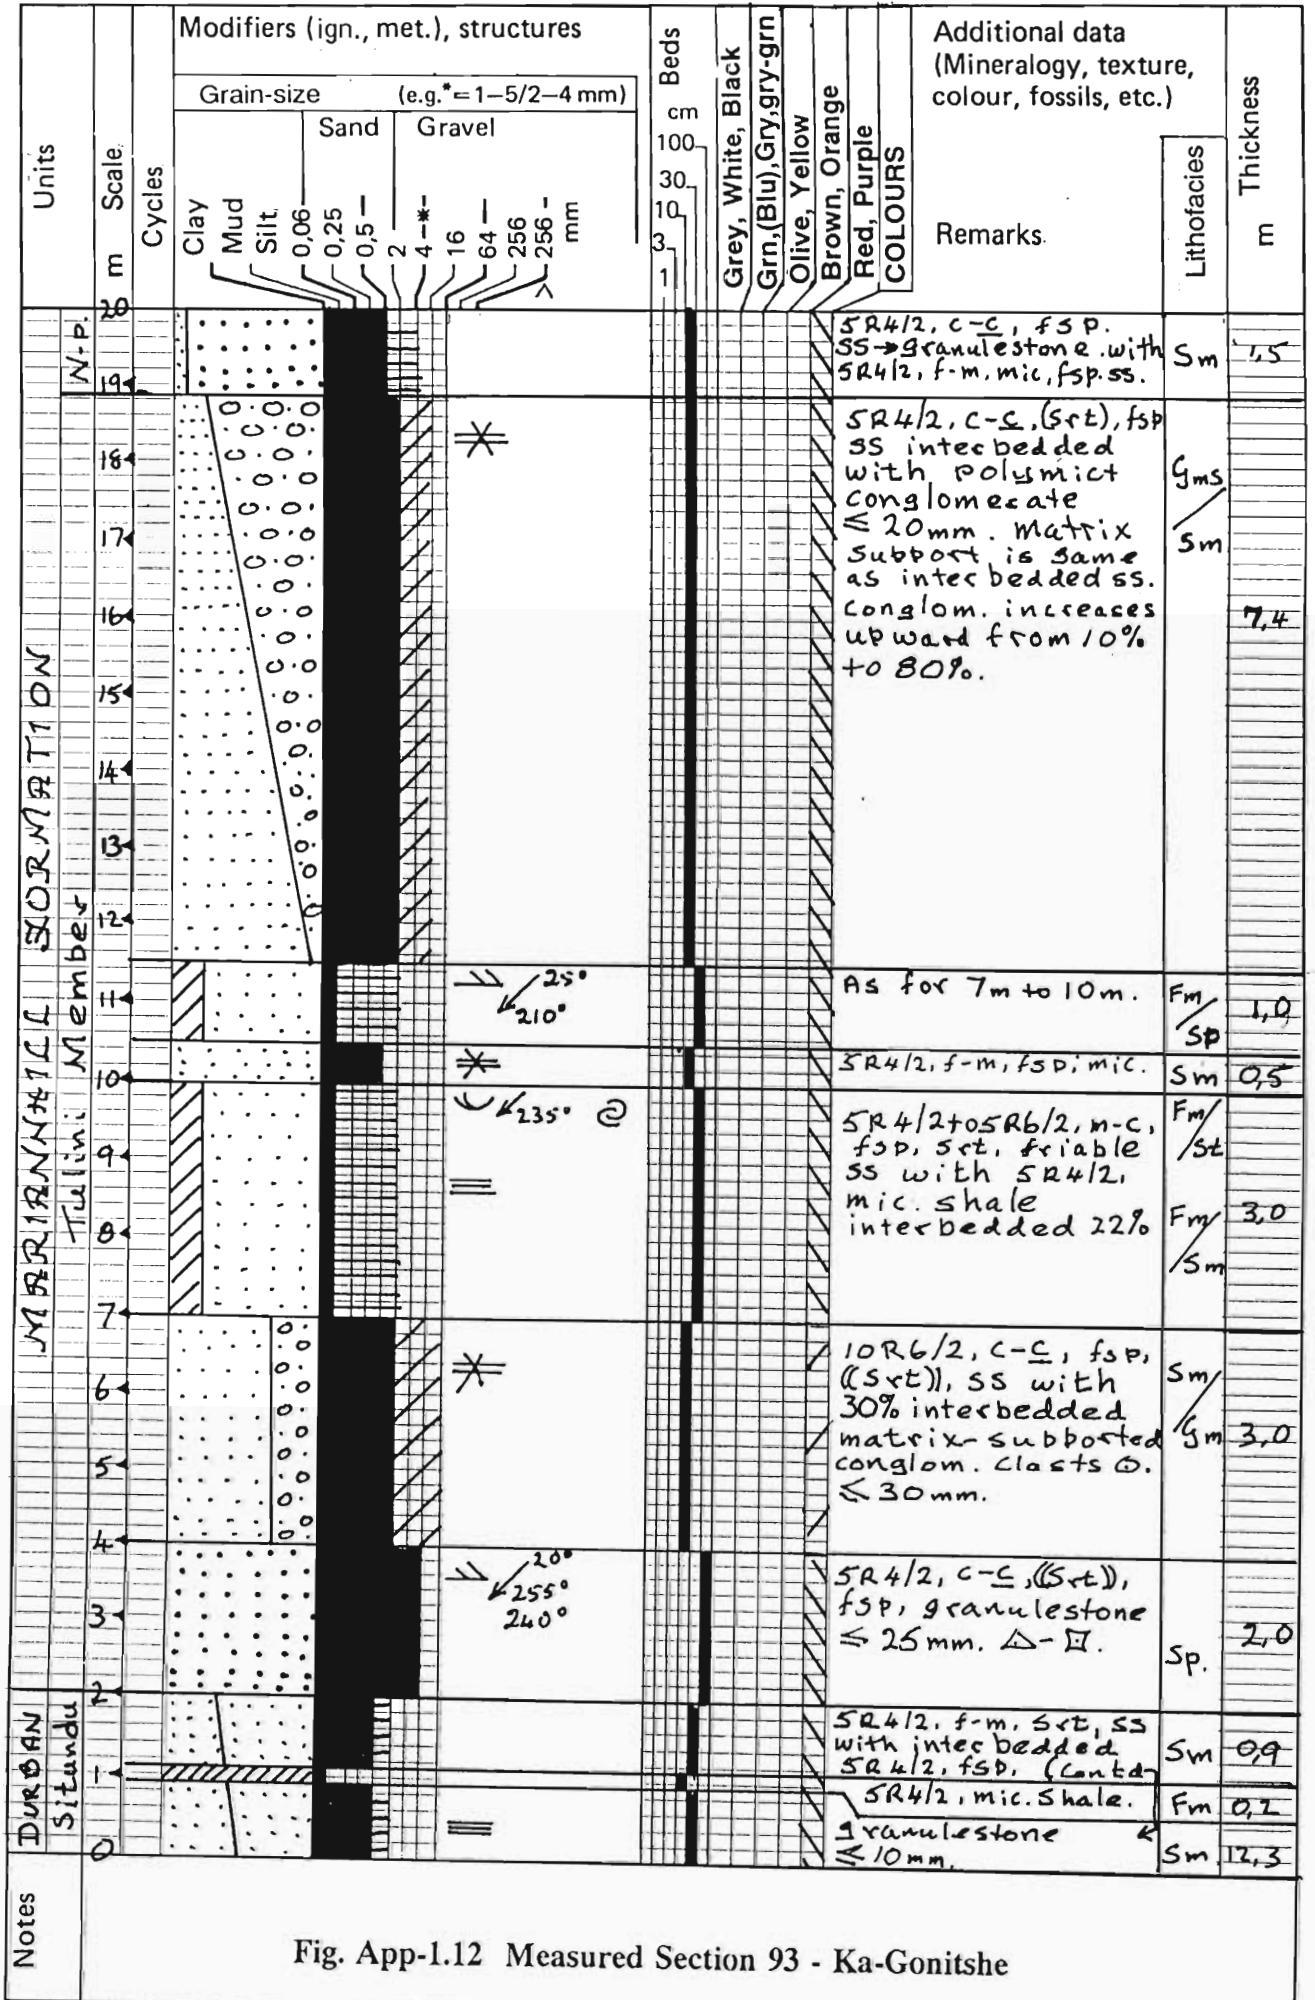 Units
m Scale
Cycles
Modifiers (ign., met.), structures
Grain-size (e.g.*=1–5/2–4 mm)
Sand Gravel
Clay
Mud
Silt.
0,06
0,25
0,5 –
2
4 –*-
16
64 —
256
>256 -
mm
Beds
cm
100
30
10
3
1
Grey, White, Black
Grn,(Blu),Gry,gry-grn
Olive, Yellow
Brown, Orange
Red, Purple
COLOURS
Additional data
(Mineralogy, texture,
colour, fossils, etc.)
Remarks
Lithofacies
Thickness
m
MARIANNHILL FORMATION
N-p.
Tulini Member
DURBAN
Situndu
20
19
18
17
16
15
14
13
12
11
10
9
8
7
6
5
4
3
2
1
0
5R4/2, c-c, fsp.
SS→granulestone with
5R4/2, f-m, mic, fsp. ss.
Sm
1,5
5R4/2, c-c, (Srt), fsp
SS interbedded
with polymict
conglomerate
≤ 20mm. Matrix
support is same
as interbedded ss.
Conglom. increases
upward from 10%
to 80%.
Gms
/
Sm
7,4
25°
210°
As for 7m to 10m.
Fm/
Sp
1,0
5R4/2, f-m, fsp, mic.
Sm
0,5
235°
5R4/2 to 5R6/2, m-c,
fsp, srt, friable
SS with 5R4/2,
mic. shale
interbedded 22%
Fm/
St
Fm/
Sm
3,0
10R6/2, c-c, fsp,
((Srt)), SS with
30% interbedded
matrix-supported
conglom. clasts
≤ 30mm.
Sm/
Gm
3,0
20°
255°
240°
5R4/2, c-c, ((Srt)),
fsp, granulestone
≤ 25mm. △-□.
Sp.
2,0
5R4/2, f-m, Srt, SS
with interbedded
5R4/2, fsp. (contd
Sm
0,9
5R4/2, mic. shale.
Fm
0,2
granulestone
≤ 10mm.
Sm
12,3
Notes
Fig. App-1.12 Measured Section 93 - Ka-Gonitshe